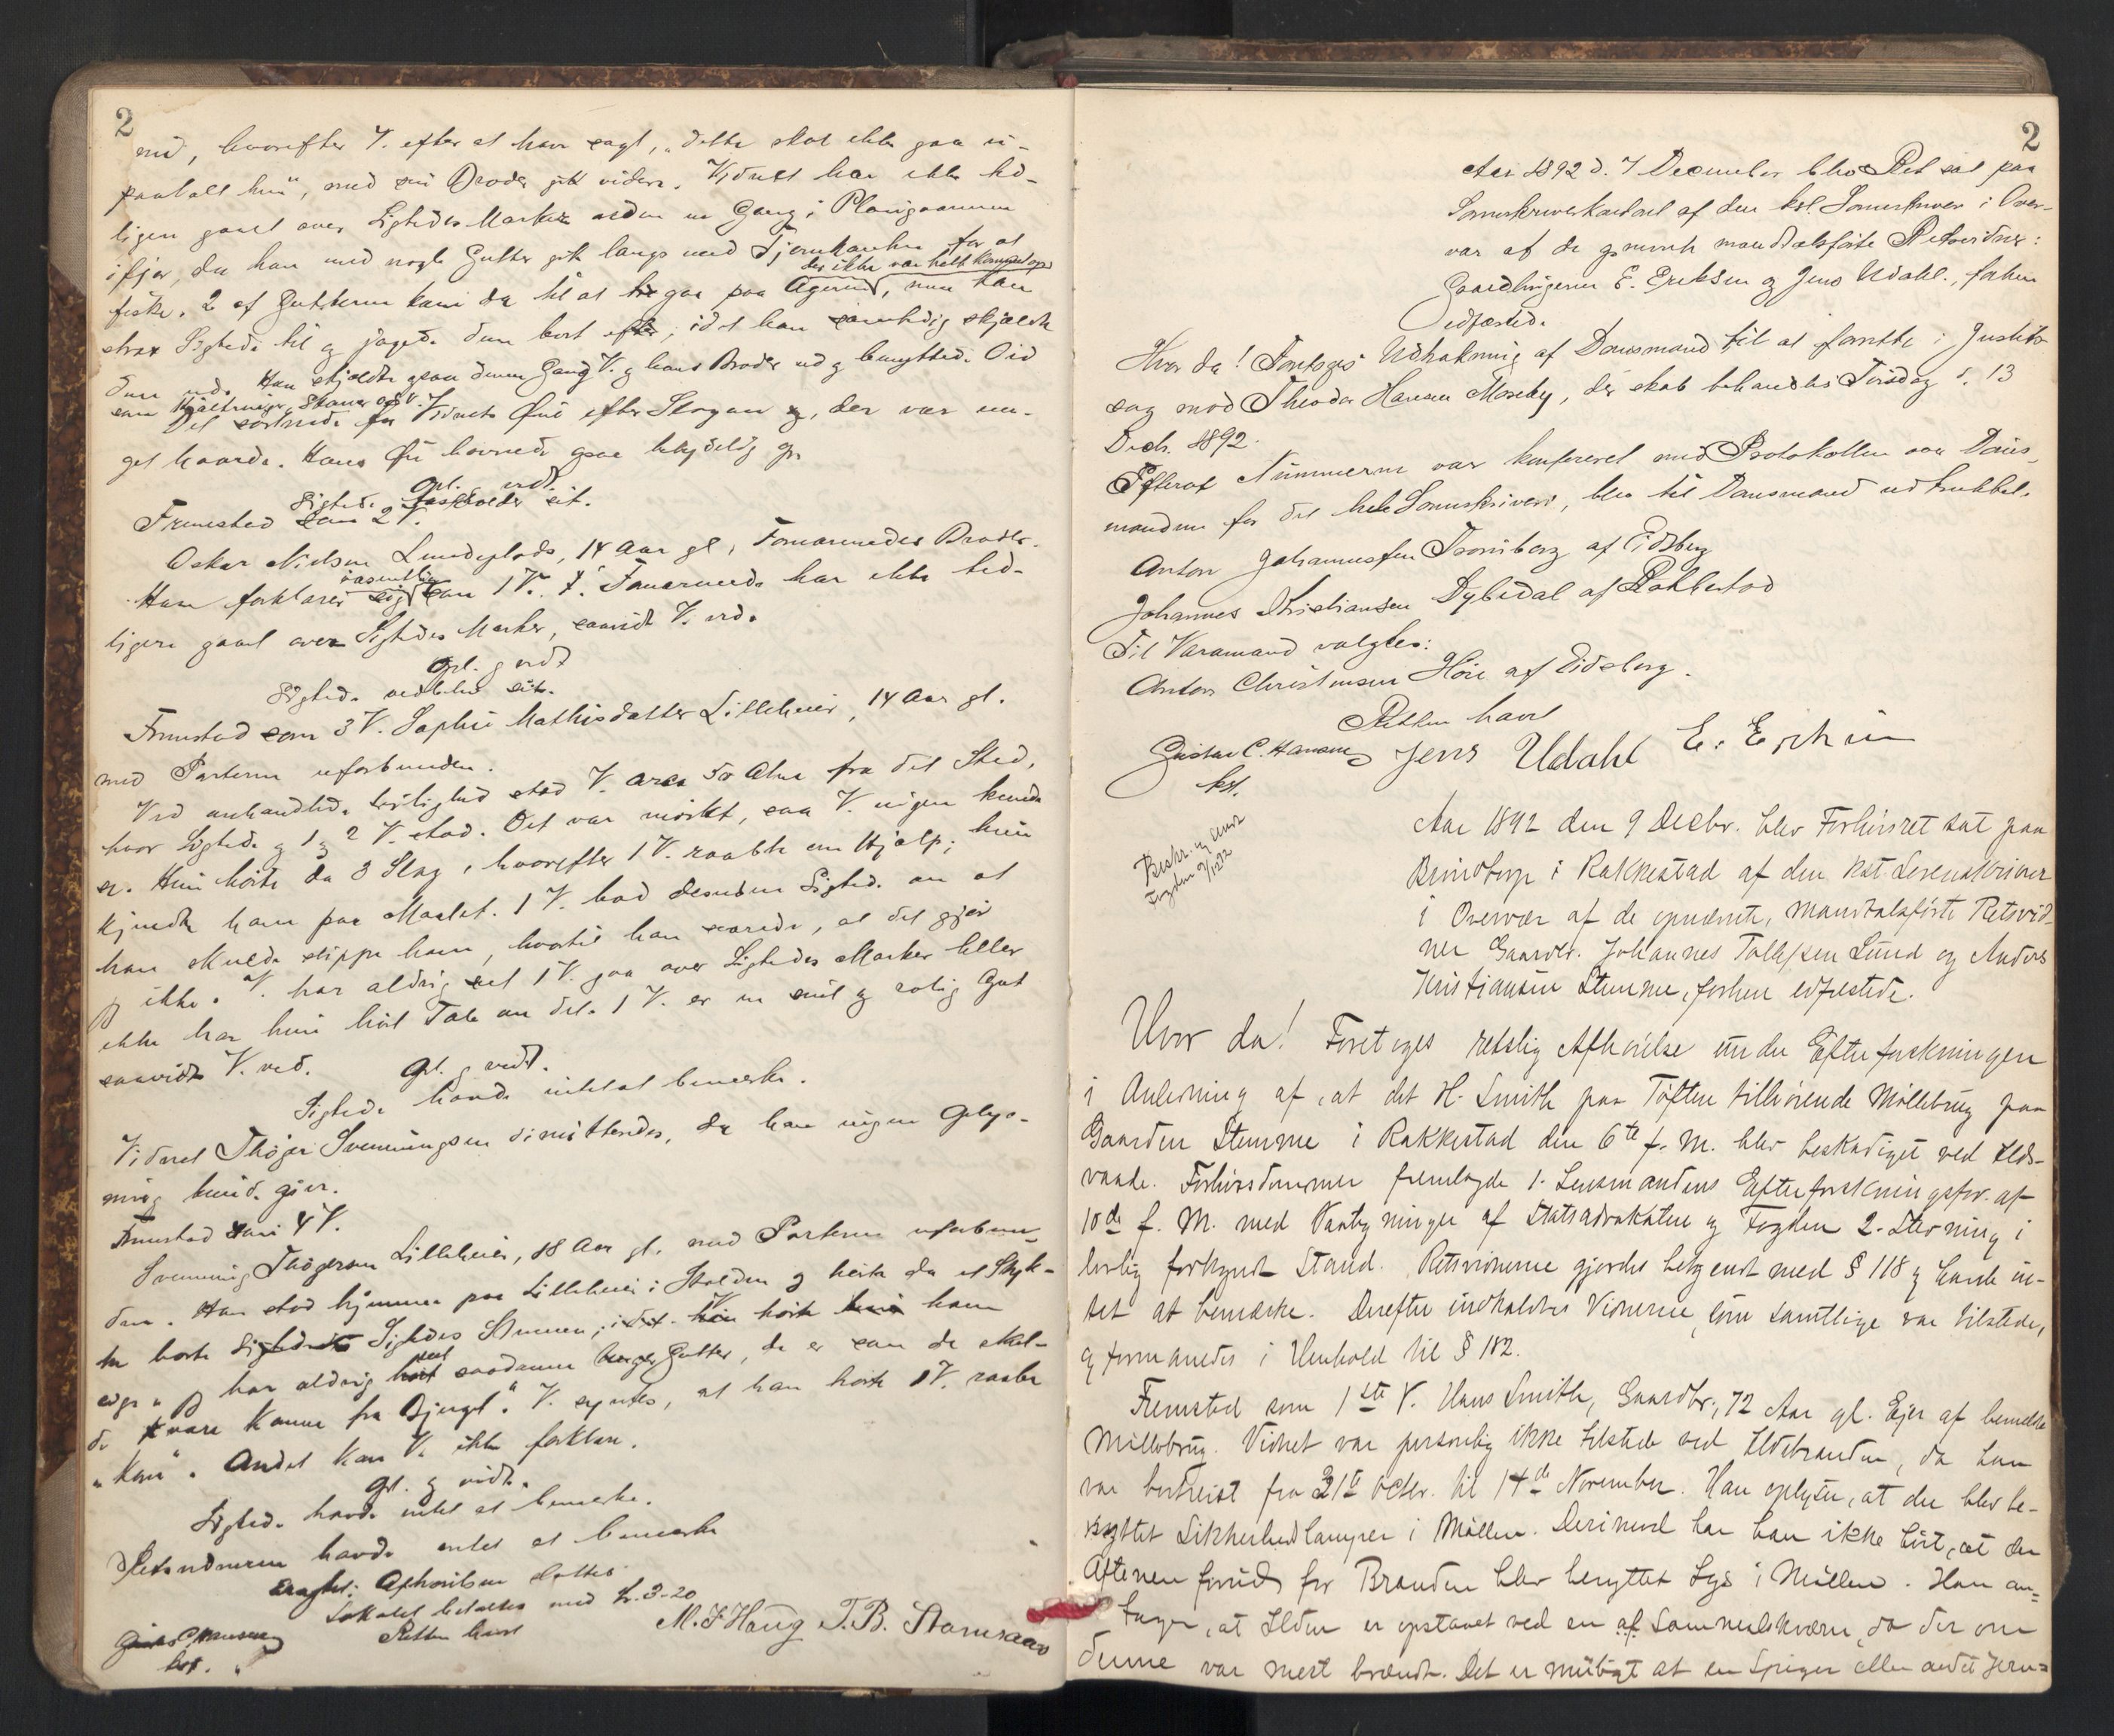 2
ned, hvorefter V. efter at have sagt, „dette skal ikke gaa u-
paatalt hen", med sin Broder gik videre. Vidnet har ikke tid-
ligere gaaet over Sigtedes Marker uden en Gang i
ifjor, da han med nogle Gutter gik langs med Tjernkanten for at
der ikke var helt kommet op
fiske. 2 af Gutterne kom da til at gaa paa Ageren, men kom
strax Sigtede til og jagede dem bort, idet han samtidig skjældte
dem ud. Han skjældte ogsaa denne Gang V. og hans Broder ud og benyttede Ord
som Kjæltringer,
Det sortnede for Vidnets Øine efter Slagene, der var me-
get haarde. Hans Øie hovnede ogsaa betydelig op.
Opl. vedt.
Sigtede fastholder sit.
Fremstod som 2 V.
Oskar Nielsen Lundeplads, 14 Aar gl, Fornærmedes Broder.
væsentlig
Han forklarer som 1 V. Fornærmede har ikke tid-
ligere gaaet over Sigtedes Marker, saavidt V. ved.
Opl. og vedt
Sigtede vedblev sit.
Fremstod som 3 V. Sophie Mathisdatter Lilleheier, 14 Aar gl.
med Parterne uforbunden.
Ved omhandlede Leilighed stod V. circa 50 Alen fra det Sted,
hvor Sigtede og 1 og 2 V. stod. Det var mørkt, saa V. ingen kunde
se. Hun hørte da 3 Slag, hvorefter 1 V. raabte om Hjælp; hun
kjendte ham paa Maalet. 1 V. bad desuden Sigtede om at
han skulde slippe ham, hvortil han svarede, at det gjør
jeg ikke. V. har aldrig set 1 V. gaa over Sigtedes Marker heller
ikke har hun hørt Tale om det. 1 V. er en snil og rolig Gut
saavidt V. ved.
Opl. og vedt.
Sigtede havde intet at bemærke.
Vidnet Thøger Svenningsen dimitteredes, da han ingen Oplys-
ning kunde give.
Fremstod som 4 V.
Svenning Thøgersen Lilleheier, 18 Aar gl. med Parterne uforbun-
den. Han stod hjemme paa Lilleheier i Stalden og hørte da et Skyk-
ke borte Sigtedes Stemme; idet V. hørte ham
sige „jeg har aldrig set saadanne Gutter, de er som de skul-
de være komne fra Djuplt". V. syntes, at han hørte 1 V. raabe
„Kom". Andet kan V. ikke forklare.
Opl. og vedt.
Sigtede havde intet at bemærke.
Retsvidnerne havde intet at bemærke
Afhørelsen sluttes
Lokalet betaltes med kr. 3-20
Retten hævet
Gustav C. Hansen
kst.
M. J. Haug T. B.
2
Aar 1892 d. 7 December blev Ret sat paa
Sorenskriverkontoret af den kst. Sorenskriver i Over-
var af de opnævnte mandtalsførte Retsvidner:
Gaardbrugerne E. Eriksen og Jens Udahl, forhen
edfæstede.
Hvor da! Foretoges Udtrækning af Domsmænd til at forrette i Justits-
sag mod Theodor Hansen Moseby, der skal behandles Tirsdag d. 13
Decb. 1892.
Efterat Nummerne var konfereret med Protokollen over Doms-
mændene for det hele Sorenskriveri, blev til Domsmænd udtrukket.
Anton Johannessen Tronsborg af Eidsberg
Johannes Kristiansen Dybedal af Rakkestad
Til Varamand valgtes:
Anton Christensen Høie af Eidsberg.
Retten hævet
Gustav C. Hansen Jens Udahl E. Eriksen
kst.
Beskr. og sendt
Fogden 9/12 92
Aar 1892 den 9 Decbr. blev Forhørsret sat paa
i Rakkestad af den kst. Sorenskriver
i Overvær af de opnævnte, mandtalsførte Retsvid-
ner Gaardbr. Johannes Tollefsen Lund og Anders
Kristiansen Stemme, forhen edfæstede.
Hvor da! Foretoges retslig Afhørelse under Efterforskningen
i Anledning af, at det H. Smith paa Toften tilhørende Møllebrug paa
Gaarden Stemme i Rakkestad den 6te f. M. blev beskadiget ved Ilds-
vaade. Forhørsdommeren fremlagde 1. Lensmandens Efterforskningsfor. af
10de f. M. med Paategninger af Statsadvokaten og Fogden 2. Stevning i
lovlig forkyndt Stand. Retsvidnerne gjordes bekjendt med § 118 og havde in-
tet at bemærke. Derefter indkaldtes Vidnerne, som samtlige var tilstede,
og formanedes i Henhold til § 182.
Fremstod som 1ste V. Hans Smith, Gaardbr., 72 Aar gl. Ejer af bemeldte
Møllebrug. Vidnet var personlig ikke tilstede ved Ildebranden, da han
var bortreist fra 31te Octbr. til 14de November. Han oplyser, at der blev be-
nyttet Sikkerhedslamper i Møllen. Derimod har han ikke hørt, at der
Aftenen forud for Branden blev benyttet Lys i Møllen. Han an-
tager, at Ilden er opstaaet ved en af Sammalskværn, da der om
denne var mest brændt. Det er muligt at en Spiger eller andet Jern-